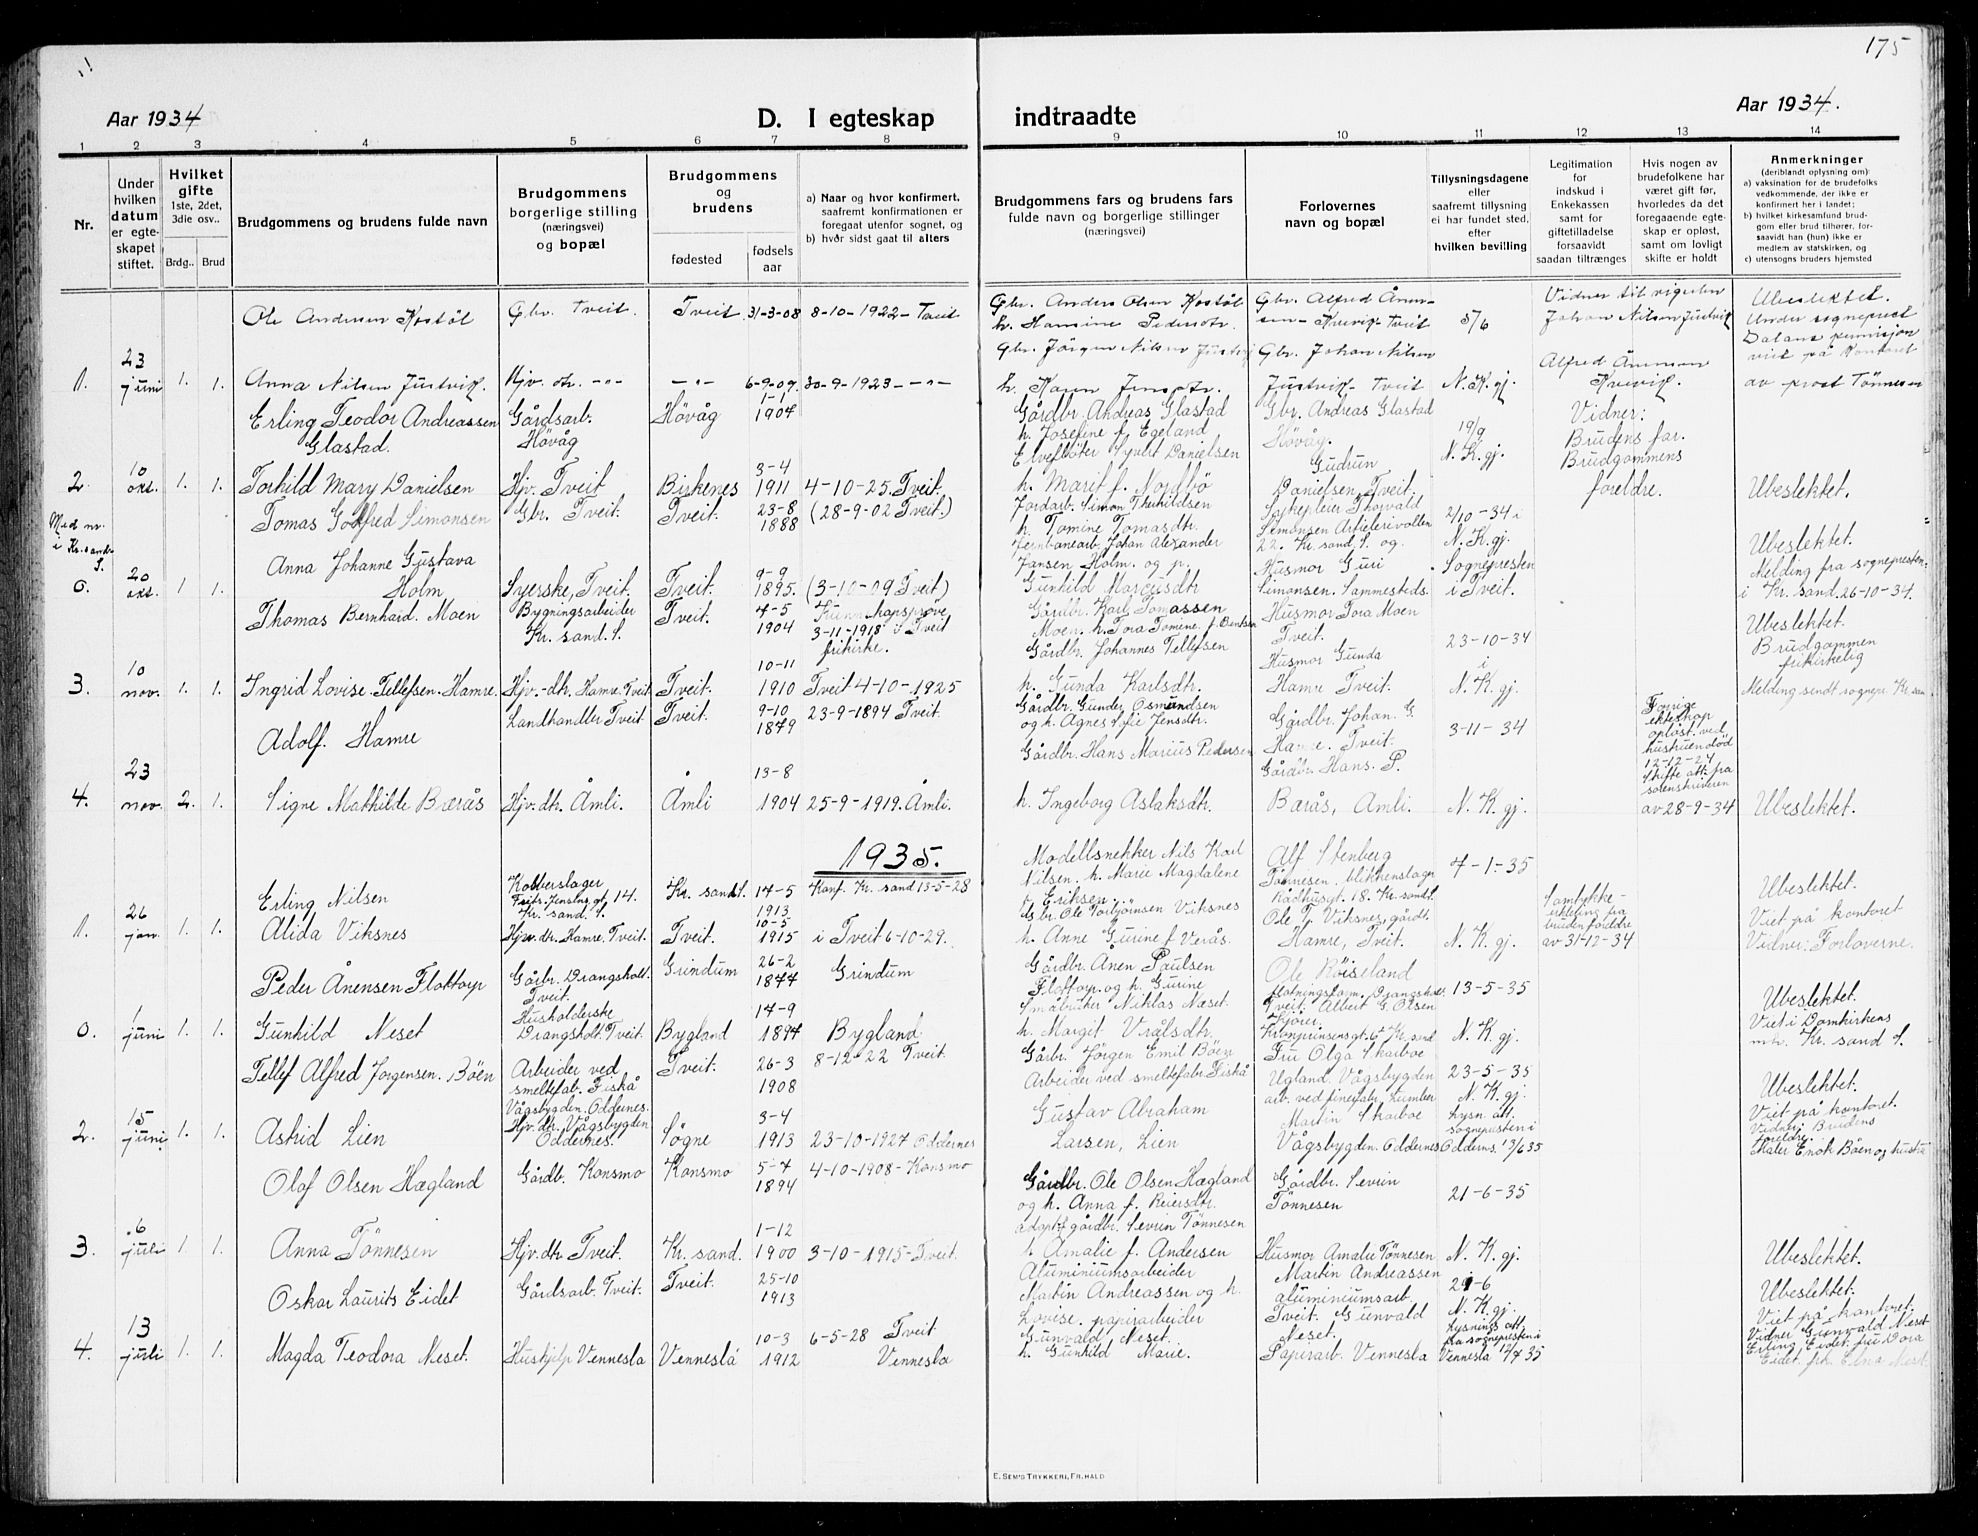 175
Aar 1934
D. I egteskap
indtraadte
Aar 1934.
1 2 3 4 5 6 7 8 9 10 11 12 13 14
Nr.
Under
hvilken
datum
er egte-
skapet
stiftet.
Hvilket
gifte
1ste, 2det,
3die osv..
Brdg.. Brud
Brudgommens og brudens fulde navn
Brudgommens
borgerlige stilling
(næringsvei)
og bopæl
Brudgommens
og
brudens
fødested
fødsels
aar
a) Naar og hvor konfirmert,
saafremt konfirmationen er
foregaat utenfor sognet, og
b) hvor sidst gaat til alters
Brudgommens fars og brudens fars
fulde navn og borgerlige stillinger
(næringsvei)
Forlovernes
navn og bopæl
Tillysningsdagene
eller
saafremt tillysning
ei har fundet sted,
efter
hvilken bevilling
Legitimation
for
indskud i
Enkekassen
samt for
giftetilladelse
forsaavidt
saadan tiltrænges
Hvis nogen av
brudefolkene har
været gift før,
hvorledes da det
foregaaende egte-
skap er opløst,
samt om lovligt
skifte er holdt
Anmerkninger
(deriblandt oplysning om):
a) vaksination for de brudefolks
vedkommende, der ikke er
konfirmert her i landet;
b) hvilket kirkesamfund brud-
gom eller brud tilhører, for-
saavidt han (hun) ikke er
medlem av statskirken, og
c) utensogns bruders hjemsted
Ole Andersen Kostöl
Gbr. Tveit.
Tveit
31-3-08
8-10-1922-Tveit
Gbr. Anders Olsen Kostöl
h. Hansine Pedersdtr.
Gbr. Alfred Ånen-
sen - Kvevik - Tveit
5/6
Vidner til vigselen
Johan Nilsen Justvik
Alfred Ånensen
Kvevik.
Ubeslektet.
Under sogneprest
Dalans permisjon
viet på kontoret
av prost Tønnesen
1.
23
juni
1. 1.
Anna Nilsen Justvik.
Hjv. dtr. -"-
-"-
6-9-09.
30-9-1923 -"-
Gbr. Jörgen Nilsen Justvik
h. Karen Jensdtr.
Gbr. Johan Nilsen
Justvik - Tveit
N. K. gj.
Erling Teodor Andreassen
Glastad.
Gårdsarb.
Hövåg
Hövåg
1-1
1904
Gårdbr. Andreas Glastad
h. Josefine f. Egeland
Gbr. Andreas Glastad
Hövåg.
19/9
N. K. gj.
Vidner:
Brudens far.
Brudgommens
foreldre.
2.
10
okt.
1. 1.
Torhild Mary Danielsen
Hjv. Tveit
Birkenes
3-4
1911
4-10-25. Tveit.
Elvefløter Syvert Danielsen
h. Marit f. Nordbö
Gudrun
Danielsen, Tveit.
Ubeslektet.
Med nr.
i Kr.sand
S.
Tomas Gotfred Simonsen
Gbr. Tveit.
Tveit.
23-8
1888
(28-9-02 Tveit.)
Jordarb. Simon Therkildsen
h. Tomine Tomasdtr.
Sykepleier Thorvald
Simonsen Artillerivollen
22. Kr. sand, S. og
2/10-34 i
N. K. gj.
Sognepresten
i Tveit.
Ubeslektet.
Melding fra sognepresten
i Kr. sand. 26-10-34.
0.
20
okt.
1. 1.
Anna Johanne Gustava
Holm
Syerske, Tveit.
Tveit.
9-9
1895.
(3-10-09 Tveit)
Jernbanearb. Johan Alexander
Jansen Holm. og p.
Gunhild Marcusdtr
Husmor Guri
Simonsen. Sammesteds.
Thomas Bernhard. Moen
Bygningsarbeider
Kr. sand. S.
Tveit.
4-5
1904
Kunnskapsprøve
3-11-1918 i Tveit
frikirke.
Gårdbr. Karl Tomassen
Moen. h. Tora Tomine f. Bentsen
Husmor Tora Moen
Tveit.
23-10-34
i
N. K. gj.
Ubeslektet.
Brudgommen
frikirkelig
Melding sendt sognepr. Kr. sand
3.
10
nov.
1. 1.
Ingrid Lovise Tellefsen. Hamre.
Hjv.-dtr. Hamre. Tveit
Tveit.
10-11
1910
Tveit 4-10-1925
Gårdbr. Johannes Tellefsen
h. Gunda Karlsdtr.
Husmor Gunda
Hamre Tveit.
Adolf. Hamre
Landhandler Tveit
Tveit.
9-10
1879
23-9-1894 Tveit.
Gårdbr. Gunder Osmundsen
og h. Agnes Sofie Jensdtr.
Gårdbr. Johan. G.
Hamre. Tveit.
3-11-34
Forrige
ekteskap
opløst ved
hustruens död
12-12-24
Skifte att. fra
sorenskriveren
av 28-9-34
4.
23
nov.
2. 1.
Signe Mathilde Bærås
Hjv. dtr. Åmli.
Åmli
13-8
1904
25-9-1919. Åmli.
Gårdbr. Hans Marius Pedersen
h. Ingeborg Aslaksdtr.
Gårdbr. Hans. P.
Bærås, Åmli.
N. K. gj.
Ubeslektet.
1935.
Erling Nilsen
Kobberslager
Kr. sand. S.
Kr. sand S.
14-5
1913
Konf. Kr. sand 13-5-28
Modellsnekker Nils Karl
Nilsen. h. Marie Magdalene
f. Eriksen.
Alf Stenberg
Tønnesen. blikkenslager
Rådhusgt. 18. Kr. sand S.
7-1-35
Samtykke-
erklæring fra
brudens foreldre
av 31-12-34
Ubeslektet.
Viet på kontoret
Vidner: Forloverne.
1.
26
jan.
1. 1.
Alida Viksnes
Hjv. dtr. Hamre. Tveit.
Tveit.
10-5
1915
i Tveit 6-10-29.
Gbr. Ole Torbjörnsen Viksnes
h. Anne Gurine f. Verås.
Ole T. Viksnes, gårdbr.
Hamre, Tveit.
N. K. gj.
Peder Ånensen Flottorp
Gårbr. Drangsholt.
Tveit.
Grindum
26-2
1877
Grindum
Gårdbr. Ånen Paulsen
Flottorp. og h. Gurine
Ole Röiseland
fløtningsform. Drangsholt
Tveit. Albert G. Olsen
13-5-35
Ubeslektet.
Viet i Domkirken
Kr. sand S.
0.
1
juni
1. 1.
Gunhild Neset
Husholderske
Drangsholt. Tveit.
Bygland
14-9
1894
Bygland
Småbruker Niklas Neset.
h. Margit Vrålsdtr.
Kronprinsensgt. 67 Kr. sand
N. K. gj.
Tellef Alfred Jørgensen. Böen
Arbeider ved
smeltefab. Fiskå
Vågsbygden. Oddernes.
Tveit.
26-3
1908
8-12-22 Tveit.
Gårbr. Jörgen Emil Böen
Arbeider ved smeltefabr. Fiskå
Fru Olga Skarboe
Ugland. Vågsbygden
23-5-35
N. K. gj.
lysn. att.
sognepresten i
Oddernes 13/6 35
Ubeslektet.
Viet på kontoret.
Vidner: Brudens
foreldre.
Maler Enok Böen og hustru
2.
15
juni
1. 1.
Astrid Lien
Hjv. dtr. Vågsbygden
Oddernes.
Søgne
3-4
1913
23-10-1927 Oddernes
Gustav Abraham
Larsen, Lien
Martin Skarboe
Vågsbygden. Oddernes
Olaf Olsen Hægland
Gårdb. Konsmo
Konsmo
5-7
1894
4-10-1908-Konsmo
Gårdbr. Ole Olsen Hægland
og h. Anna f. Reiersdtr.
Gårdbr. Sevrin
Tönnesen
21-6-35
3.
6
juli
1. 1.
Anna Tönnesen
Hjv. dtr. Tveit.
Kr. sand.
1-12
1900
3-10-1915-Tveit.
adoptf. gårdbr. Sevrin Tönnesen
h Amalie f. Andersen
Husmor Amalie Tønnesen
N. K. gj.
Ubeslektet.
Oskar Laurits Eidet
Gårdsarb. Tveit.
Tveit.
25-10
1913
6-5-28 Tveit
Aluminiumsarbeider
Martin Andreassen og h.
Lovise.
Martin Andreassen
aluminiumsarb.
Tveit. Gunvald
Neset.
N. K. gj.
lysnings att.
fra sognepresten i
Vennesla 12/7 35
Ubeslektet.
Viet på kontoret.
Vidner Gunvald Neset
Erling Eidet. fru Dora
Eidet. frk. Elna Neset
4.
13
juli
1. 1.
Magda Teodora Neset.
Hushjelp Vennesla
Vennesla
10-3
1912
Vennesla
papirarbeider
Gunvald Neset.
h. Gunhild Marie.
Papirarb. Vennesla
E. SEM'S TRYKKERI, FR.HALD